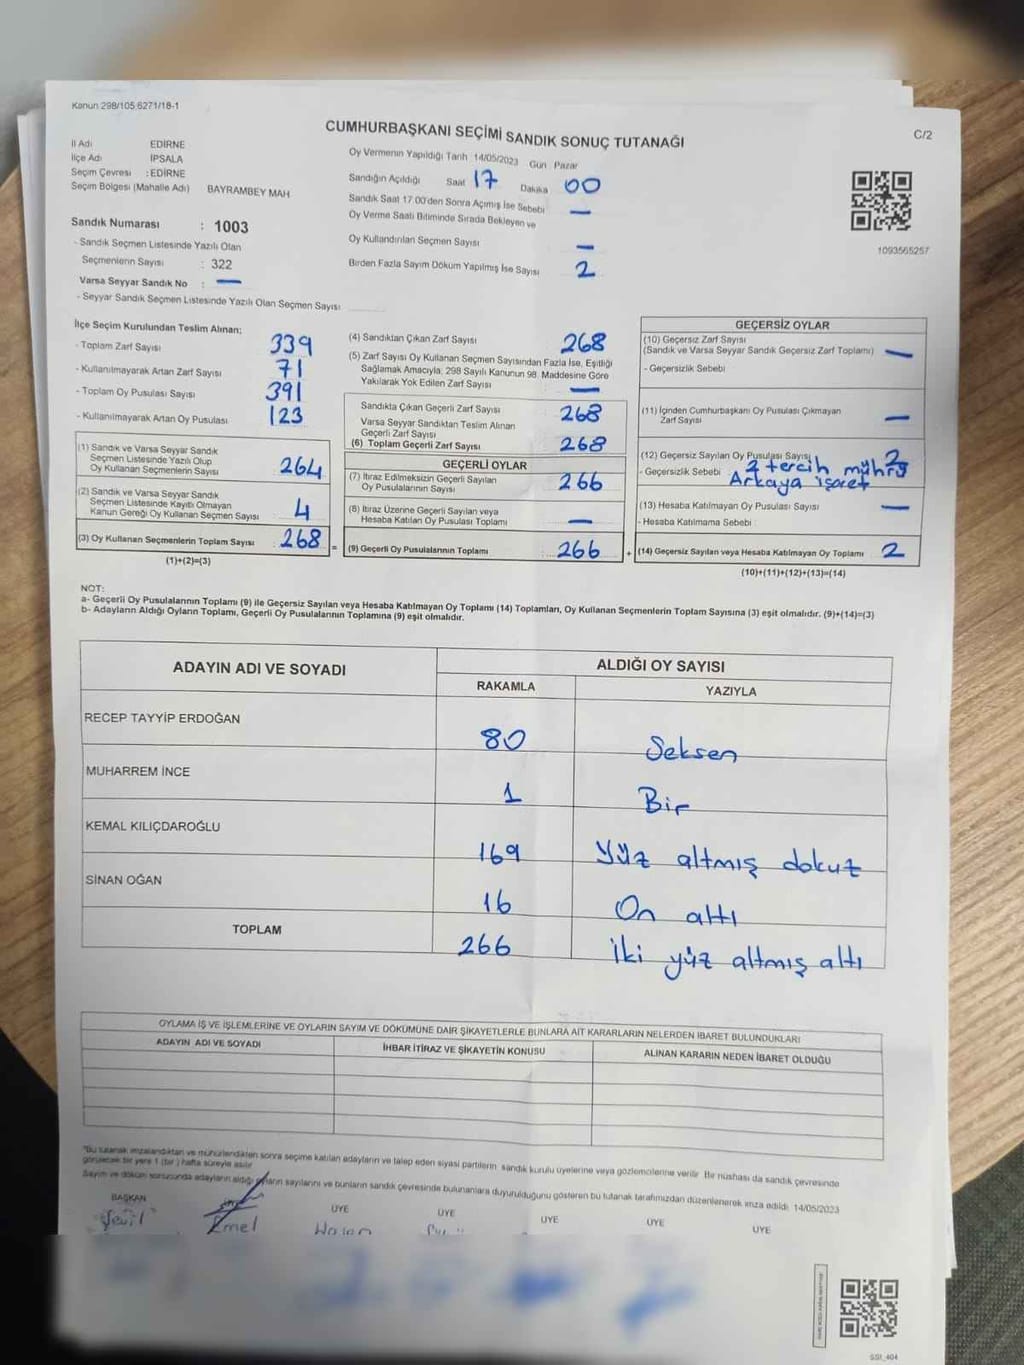 Kanun 298/105 6271/18-1
CUMHURBAŞKANI SEÇİMİ SANDIK SONUÇ TUTANAĞI
C/2
İl Adı EDİRNE
İlçe Adı İPSALA
Seçim Çevresi : EDİRNE
Seçim Bölgesi (Mahalle Adı) BAYRAMBEY MAH
Oy Vermenin Yapıldığı Tarih 14/05/2023 Gün Pazar
Sandığın Açıldığı Saat 17 Dakika 00
Sandık Saat 17.00'den Sonra Açımış İse Sebebi —
Oy Verme Saati Bitiminde Sırada Bekleyen ve
Oy Kullandırılan Seçmen Sayısı —
Birden Fazla Sayım Döküm Yapılmış İse Sayısı 2
1093565257
Sandık Numarası : 1003
- Sandık Seçmen Listesinde Yazılı Olan
Seçmenlerin Sayısı : 322
Varsa Seyyar Sandık No : —
- Seyyar Sandık Seçmen Listesinde Yazılı Olan Seçmen Sayısı
İlçe Seçim Kurulundan Teslim Alınan;
- Toplam Zarf Sayısı 339
- Kullanılmayarak Artan Zarf Sayısı 71
- Toplam Oy Pusulası Sayısı 391
- Kullanılmayarak Artan Oy Pusulası 123
(1) Sandık ve Varsa Seyyar Sandık
Seçmen Listesinde Yazılı Olup
Oy Kullanan Seçmenlerin Sayısı 264
(2) Sandık ve Varsa Seyyar Sandık
Seçmen Listesinde Kayıtlı Olmayan
Kanun Gereği Oy Kullanan Seçmen Sayısı 4
(3) Oy Kullanan Seçmenlerin Toplam Sayısı 268 =
(1)+(2)=(3)
(4) Sandıktan Çıkan Zarf Sayısı 268
(5) Zarf Sayısı Oy Kullanan Seçmen Sayısından Fazla İse, Eşitliği
Sağlamak Amacıyla; 298 Sayılı Kanunun 98. Maddesine Göre
Yakılarak Yok Edilen Zarf Sayısı —
Sandıkta Çıkan Geçerli Zarf Sayısı 268
Varsa Seyyar Sandıktan Teslim Alınan
Geçerli Zarf Sayısı
(6) Toplam Geçerli Zarf Sayısı 268
GEÇERLİ OYLAR
(7) İtiraz Edilmeksizin Geçerli Sayılan
Oy Pusulalarının Sayısı 266
(8) İtiraz Üzerine Geçerli Sayılan veya
Hesaba Katılan Oy Pusulası Toplamı —
(9) Geçerli Oy Pusulalarının Toplamı 266 +
GEÇERSİZ OYLAR
(10) Geçersiz Zarf Sayısı
(Sandık ve Varsa Seyyar Sandık Geçersiz Zarf Toplamı) —
- Geçersizlik Sebebi
(11) İçinden Cumhurbaşkanı Oy Pusulası Çıkmayan
Zarf Sayısı —
(12) Geçersiz Sayılan Oy Pusulası Sayısı 2
- Geçersizlik Sebebi 2 tercih mührü
Arkaya işaret
(13) Hesaba Katılmayan Oy Pusulası Sayısı —
- Hesaba Katılmama Sebebi :
(14) Geçersiz Sayılan veya Hesaba Katılmayan Oy Toplamı 2
(10)+(11)+(12)+(13)=(14)
NOT:
a- Geçerli Oy Pusulalarının Toplamı (9) ile Geçersiz Sayılan veya Hesaba Katılmayan Oy Toplamı (14) Toplamları, Oy Kullanan Seçmenlerin Toplam Sayısına (3) eşit olmalıdır. (9)+(14)=(3)
b- Adayların Aldığı Oyların Toplamı, Geçerli Oy Pusulalarının Toplamına (9) eşit olmalıdır.
ADAYIN ADI VE SOYADI ALDIĞI OY SAYISI
RAKAMLA YAZIYLA
RECEP TAYYİP ERDOĞAN 80 Seksen
MUHARREM İNCE 1 Bir
KEMAL KILIÇDAROĞLU 169 Yüz altmış dokuz
SİNAN OĞAN 16 On altı
TOPLAM 266 İki yüz altmış altı
OYLAMA İŞ VE İŞLEMLERİNE VE OYLARIN SAYIM VE DÖKÜMÜNE DAİR ŞİKAYETLERLE BUNLARA AİT KARARLARIN NELERDEN İBARET BULUNDUKLARI
ADAYIN ADI VE SOYADI İHBAR İTİRAZ VE ŞİKAYETİN KONUSU ALINAN KARARIN NEDEN İBARET OLDUĞU
"Bu tutanak imzalandıktan ve mühürlendikten sonra seçime katılan adayların ve talep eden siyasi partilerin sandık kurulu üyelerine veya gözlemcilerine verilir. Bir nüshası da sandık çevresinde
görülecek bir yere 1 (bir) hafta süreyle asılır
Sayım ve döküm sonucunda adayların aldığı oyların sayılarını ve bunların sandık çevresinde bulunanlara duyurulduğunu gösteren bu tutanak tarafımızdan düzenlenerek imza edildi. 14/05/2023
BAŞKAN ÜYE ÜYE ÜYE ÜYE ÜYE
Emel Hasan
SSI_404